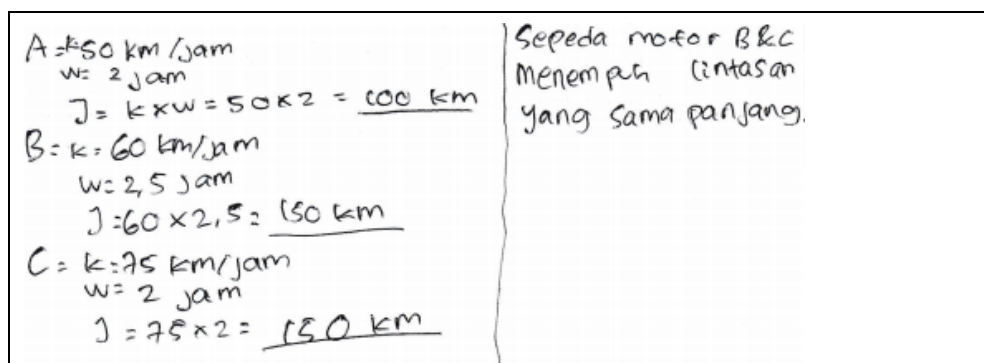 A = k = 50 km/jam
w = 2 jam
J = k x w = 50 x 2 = 100 km
B = k = 60 km/jam
w = 2,5 jam
J = 60 x 2,5 = 150 km
C = k = 75 km/jam
w = 2 jam
J = 75 x 2 = 150 km
Sepeda motor B & C
menempuh lintasan
yang sama panjang.